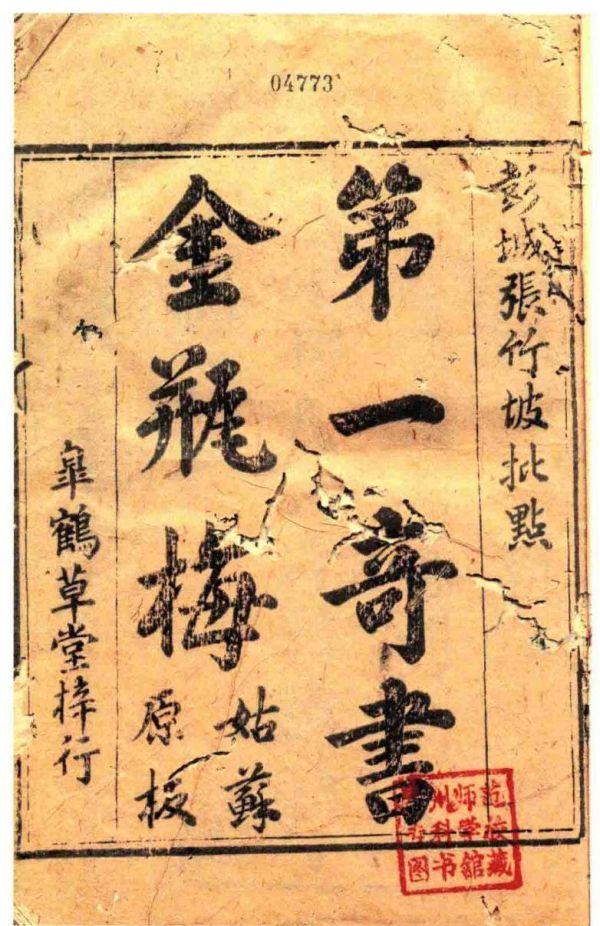 04773
彭城張竹坡批點
第一竒書
金瓶梅
姑蘇
原板
皐鶴草堂梓行
州师范
科学校
图书舘藏